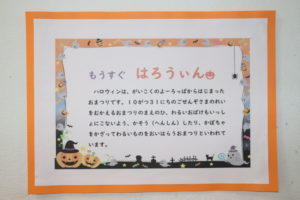 もうすぐ はろうぃん
ハロウィンは、がいこくのよーろっぱからはじまった
おまつりです。10がつ31にちのごせんぞさまのれい
をおかえるおまつりのまえのひ、わるいおばけもいっし
ょにこないよう、かそう（へんしん）したり、かぼちゃ
をかざってわるいものをおいはらうおまつりといわれて
います。